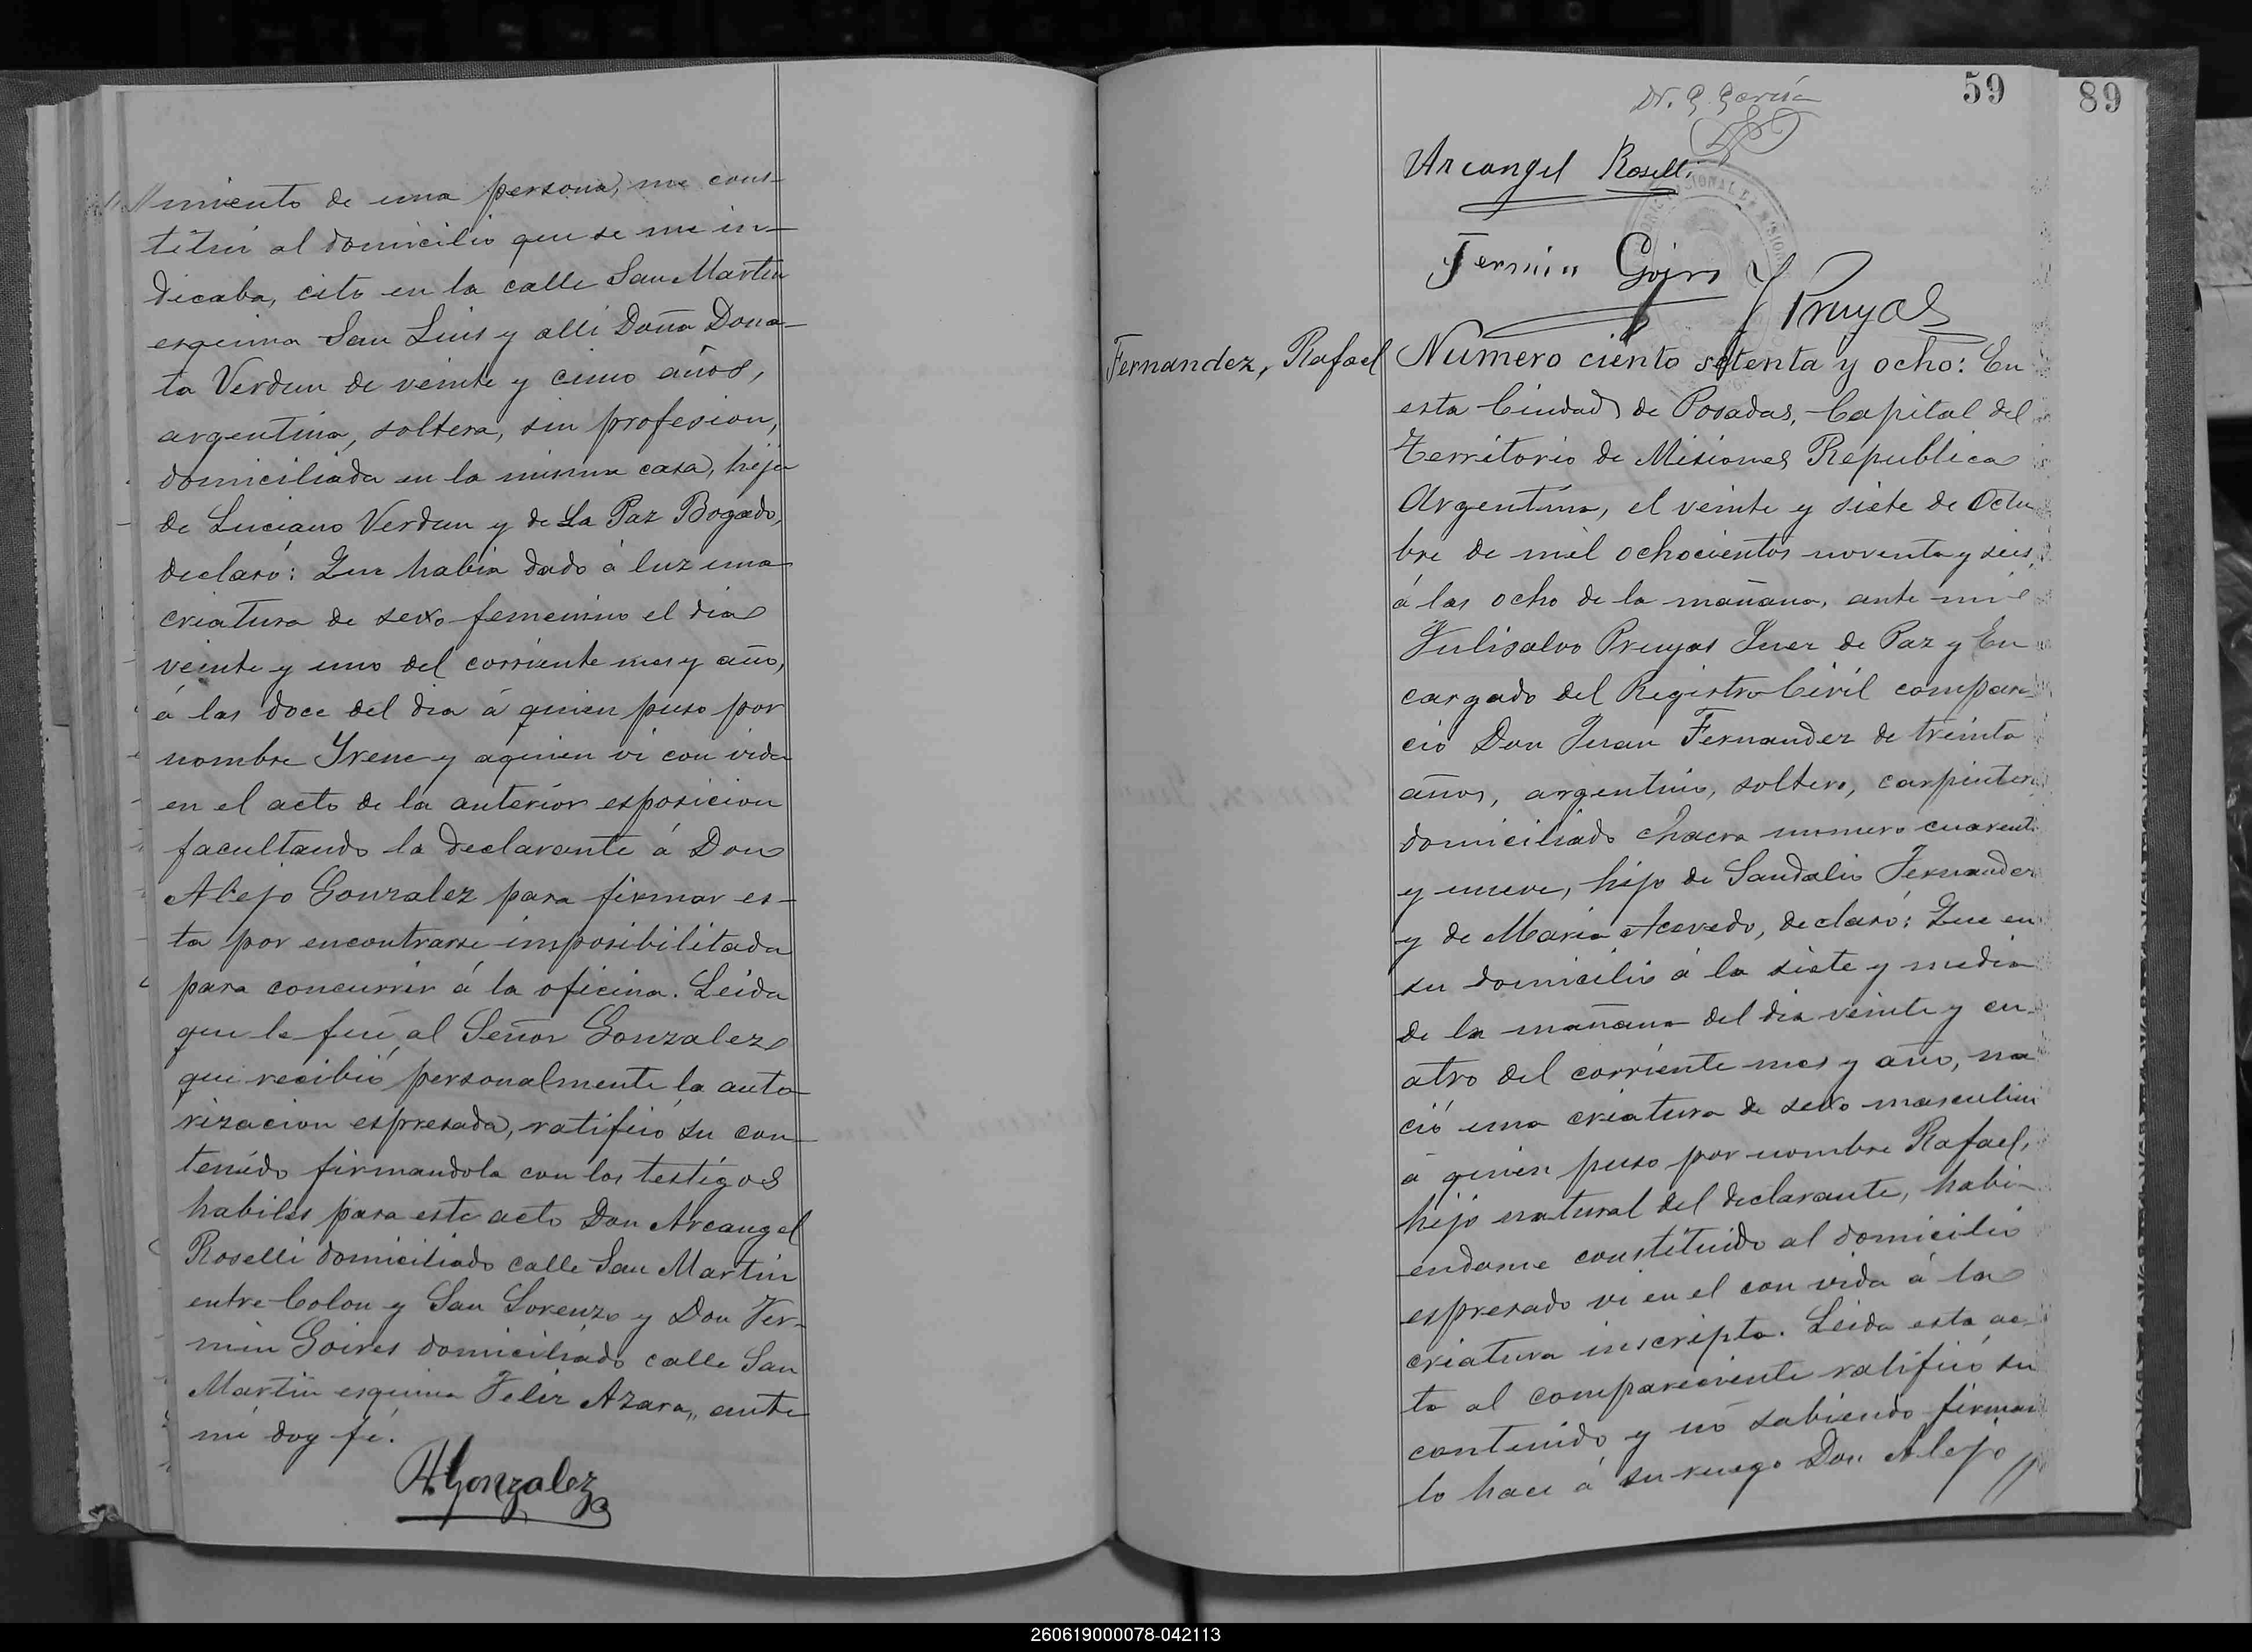 nimiento de una persona, me cons-
tituí al domicilio que se me in-
dicaba, cito en la calle San Martin
esquina San Luis y alli Doña Dona-
ta Verdun de veinte y cinco años,
argentina, soltera, sin profesion,
domiciliada en la misma casa, hija
de Luciano Verdun y de La Paz Bogado,
declaró: Que habia dado á luz una
criatura de sexo femenino el dia
veinte y uno del corriente mes y año,
á las doce del dia á quien puso por
nombre Yrene y aquien vi con vida
en el acto de la anterior esposicion
facultando la declarante á Don
Alejo Gonzalez para firmar es-
ta por encontrarse imposibilitada
para concurrir á la oficina. Leida
que le fué al Señor Gonzalez
que recibió personalmente la auto-
rizacion espresada, ratificó su con-
tenido firmandola con los testigos
habiles para este acto Don Arcangel
Roselli domiciliado calle San Martin
entre Colon y San Lorenzo y Don Fer-
min Goires domiciliado calle San
Martin esquina Felix Azara,, ante
mi doy fé.
A. Gonzalez
59
89
Dr. G. García
Arcangel Roselli
Fermin Goires
J Pruyas
Fernandez, Rafael
Número ciento setenta y ocho: En
esta Ciudad de Posadas, Capital del
Territorio de Misiones Republica
Argentina, el veinte y siete de Octu
bre de mil ochocientos noventa y seis,
á las ocho de la mañana, ante mi
Fulisalvo Pruyas Juez de Paz y En
cargado del Registro Civil compare
ció Don Juan Fernandez de treinta
años, argentino, soltero, carpintero
domiciliado chacra numero cuarenta
y nueve, hijo de Sandalio Fernandez
y de Maria Acevedo, declaró: Que en
su domicilio á la siete y media
de la mañana del dia veinte y cu-
atro del corriente mes y año, na
ció una criatura de sexo masculino
á quien puso por nombre Rafael,
hijo natural del declarante, habi-
endome constituido al domicilio
espresado vi en el con vida á la
criatura inscripta. Leida esta ac-
ta al compareciente ratificó su
contenido y nó sabiendo firmar
lo hace á su ruego Don Alejo
260619000078-042113